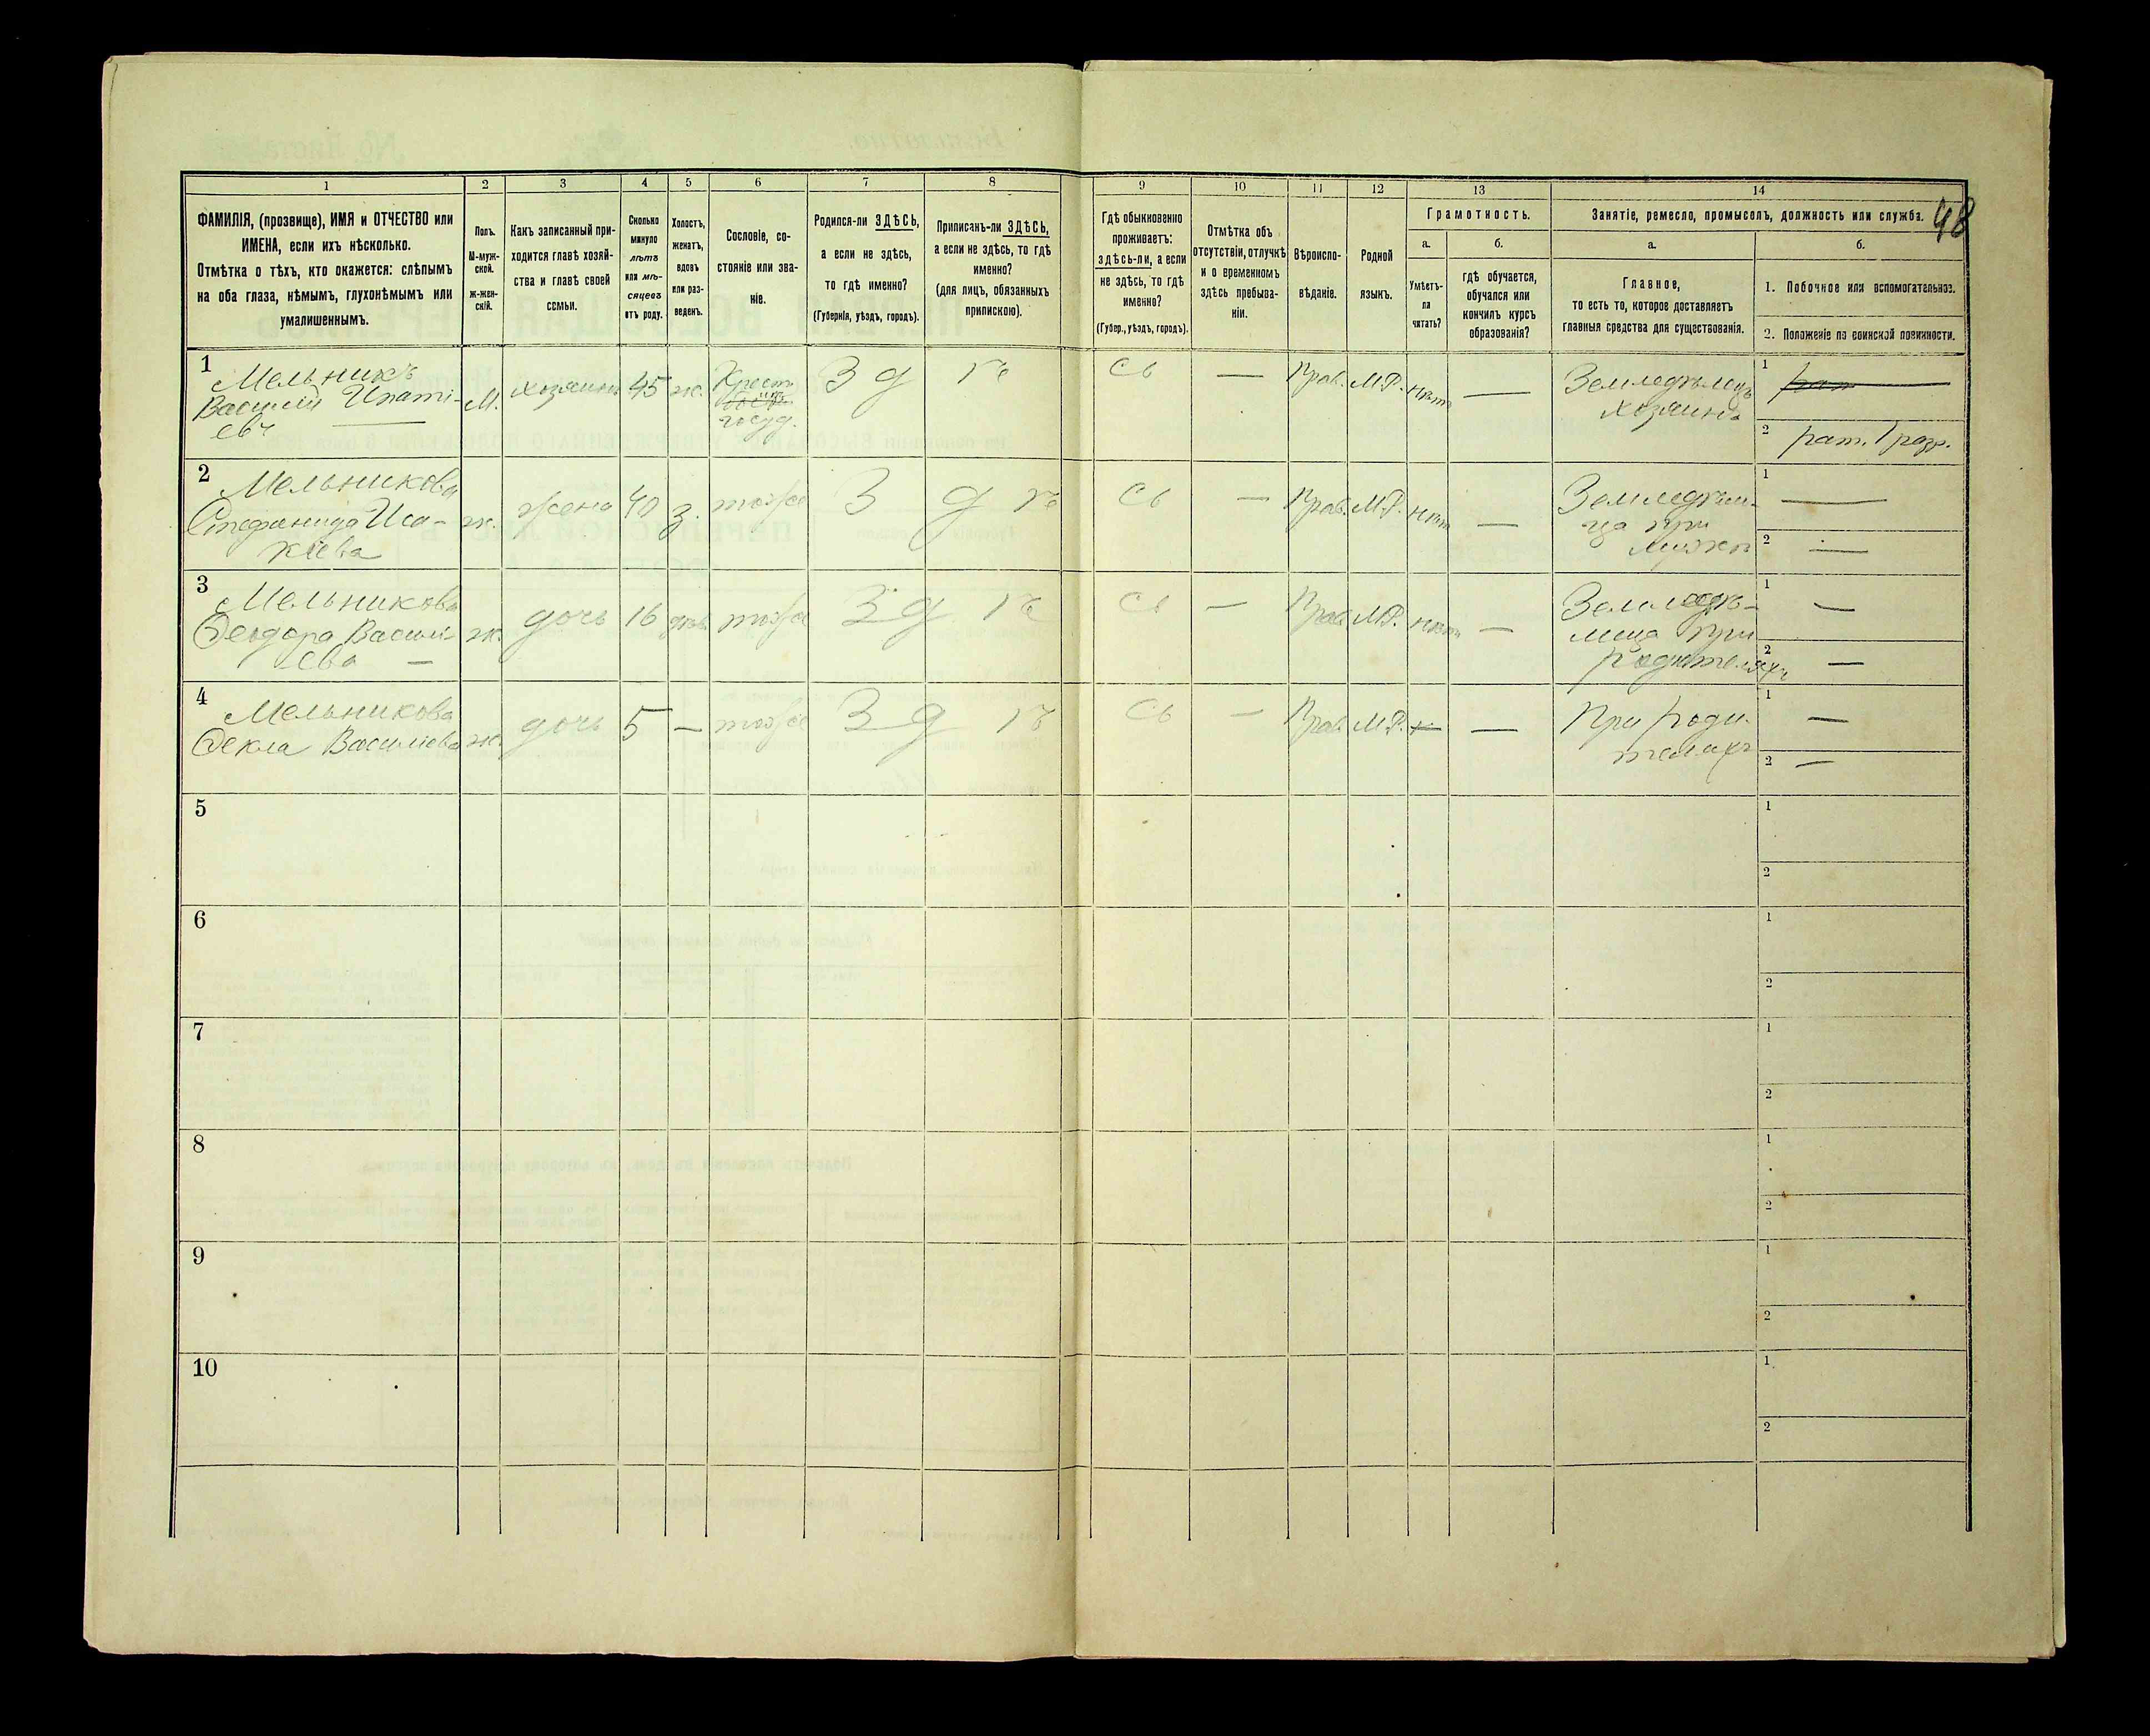 48
1
2
3
4
5
6
7
8
9
10
11
12
13
14
ФАМИЛІЯ, (прозвище), ИМЯ и ОТЧЕСТВО или
ИМЕНА, если ихъ нѣсколько.
Отмѣтка о тѣхъ, кто окажется: слѣпымъ
на оба глаза, нѣмымъ, глухонѣмымъ или
умалишеннымъ.
Полъ.
М-муж-
ской.
Ж-жен-
скій.
Какъ записанный при-
ходится главѣ хозяй-
ства и главѣ своей
семьи.
Сколько
минуло
лѣтъ
или мѣ-
сяцевъ
отъ роду.
Холостъ,
женатъ,
вдовъ
или раз-
веденъ.
Сословіе, со-
стояніе или зва-
ніе.
Родился-ли ЗДѢСЬ,
а если не здѣсь,
то гдѣ именно?
(Губернія, уѣздъ, городъ).
Приписанъ-ли ЗДѢСЬ,
а если не здѣсь, то гдѣ
именно?
(для лицъ, обязанныхъ
припискою).
Гдѣ обыкновенно
проживаетъ:
здѣсь-ли, а если
не здѣсь, то гдѣ
именно?
(Губер., уѣздъ, городъ).
Отмѣтка объ
отсутствіи, отлучкѣ
и о временномъ
здѣсь пребыва-
ніи.
Вѣроиспо-
вѣданіе.
Родной
языкъ.
Грамотность.
а.
Умѣетъ-
ли
читать?
б.
гдѣ обучается,
обучался или
кончилъ курсъ
образованія?
Занятіе, ремесло, промыселъ, должность или служба.
а.
Главное,
то есть то, которое доставляетъ
главныя средства для существованія.
б.
1. Побочное или вспомогательное.
2. Положеніе по воинской повинности.
1
Мельникъ
Василій Ипаті-
евч
М.
хозяинъ
45
ж.
Крест.
госуд.
З д
ѣ
сь
—
Прав.
М.Р.
нѣт
—
Земледѣлецъ
хозяинъ
1
рат
2
рат. 1 разр.
2
Мельникова
Стефанида Иса-
кіева
ж.
жена
40
з.
тоже
З д
ѣ
сь
—
Прав.
М.Р.
нѣт
—
Земледѣли-
ца при
мужѣ
1 —
2 —
3
Мельникова
Ѳеодора Васил-
ева —
ж.
дочь
16
дѣв.
тоже
З д
ѣ
сь
—
Прав.
М.Р.
нѣт
—
Земледѣ-
лица при
родителяхъ
1 —
2 —
4
Мельникова
Ѳекла Василіева
ж.
дочь
5
—
тоже
З д
ѣ
сь
—
Прав.
М.Р.
—
При роди-
теляхъ
1 —
2 —
5
1
2
6
1
2
7
1
2
8
1
2
9
1
2
10
1
2